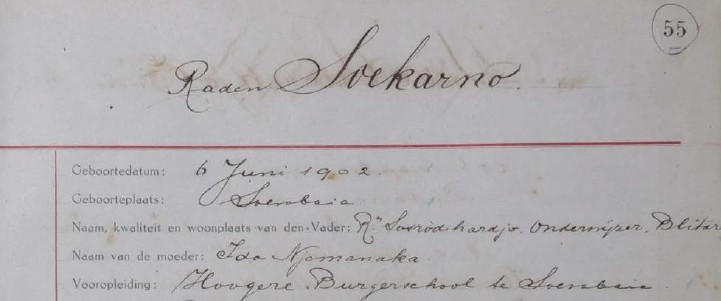 55
Raden Soekarno.
Geboortedatum: 6 Juni 1902
Geboorteplaats: Soerabaia
Naam, kwaliteit en woonplaats van den Vader: Rn Sosrodihardjo. Onderwijzer. Blitar
Naam van de moeder: Ida Njomanaka.
Vooropleiding: Hoogere Burgerschool te Soerabaia